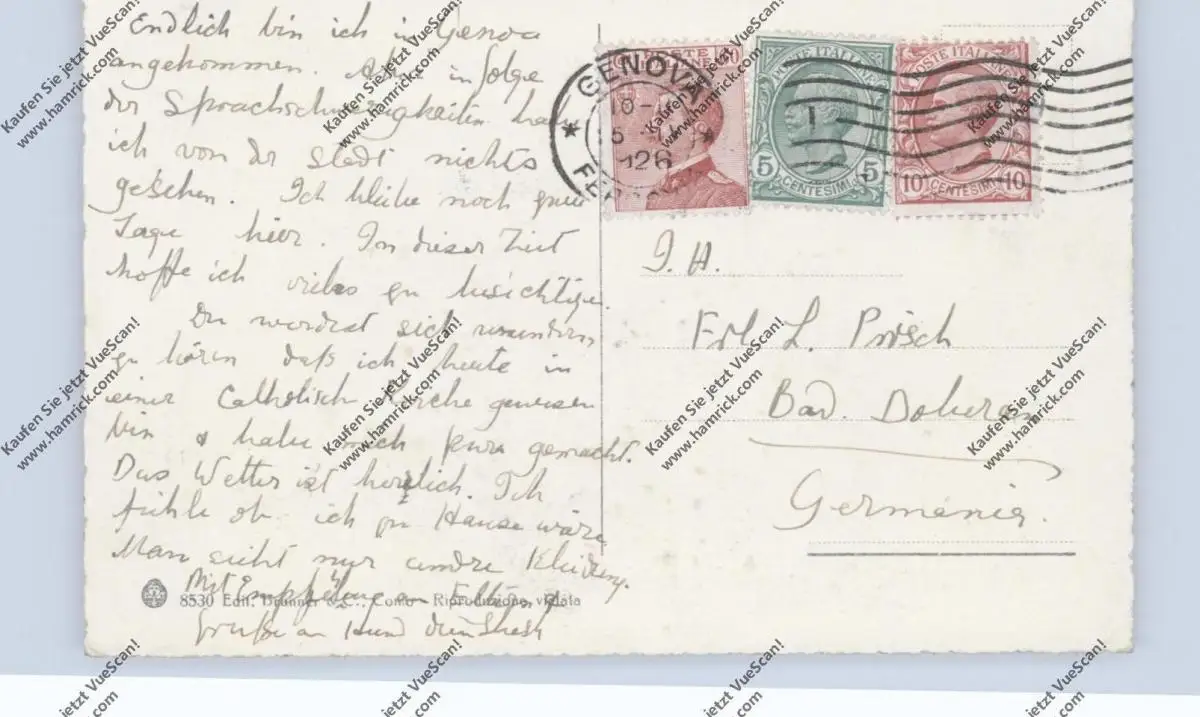 Endlich bin ich in Genova
angekommen. Aber infolge
der Sprachschwierigkeiten habe
ich von der Stadt nichts
gesehen. Ich bleibe noch
Tage hier. In dieser Zeit
hoffe ich vieles zu besichtigen.
Du wirst sich wundern
zu hören daß ich heute in
einer Catholisch Kirche gewesen
bin & habe mich gemacht.
Das Wetter ist herrlich. Ich
fühle ob ich zu Hause wäre
Man sieht nur andre Kleidung.
Mit Empfehlung an
Grüße an
8530 Edit. Brunner & C., Como - Riproduzione vietata
GENOVA
10-
1926
FERROVIA
POSTE ITALIANE
5 CENTESIMI 5
POSTE ITALIANE
10 CENTESIMI 10
I. H.
Frl L. Pirsch
Bad. Doberan
Germania.
Kaufen Sie jetzt VueScan!
www.hamrick.com